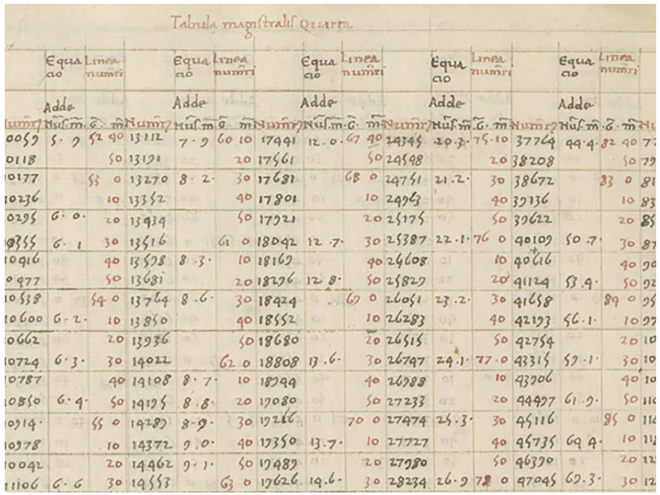 Tabula magistralis Quarta
Equacio Linea numeri Equacio Linea numeri Equacio Linea numeri Equacio Linea numeri Equacio Linea numeri
Adde Adde Adde Adde Adde
0059 5·9 52 40 13112 7·9 60 10 17441 12·0· 67 40 24345 20·3· 75·10 37764 44·4· 82 40 77
0118 50 13191 20 17561 50 24548 20 38208 50 79
0177 53 0 13270 8·2· 30 17681 68 0 24751 21·2· 30 38672 83 0 81
0236 10 13352 40 17801 10 24963 40 39136 10 83
0295 6·0· 20 13434 50 17921 20 25175 50 39622 20 85
0355 6·1 30 13516 61 0 18042 12·7· 30 25387 22·1· 76 0 40109 50·7· 30 87
0416 40 13598 8·3· 10 18169 40 25608 10 40616 40 90
0477 50 13681 20 18296 12 8· 50 25829 20 41124 53·4· 50 92
0538 54 0 13764 8·6· 30 18424 69 0 26051 23·2· 30 41658 84 0 95
0600 6·2· 10 13850 40 18552 10 26283 40 42193 56·1· 10 97
0662 20 13936 50 18680 20 26515 50 42754 20 10
0724 6·3· 30 14022 62 0 18808 13·6· 30 26747 24·1· 77·0 43315 59·1· 30 10
0787 40 14108 8·7· 10 18944 40 26988 10 43906 40 10
0850 6·4· 50 14195 8·8· 20 19080 50 27233 20 44497 61·9· 50 11
0914· 55 0 14283 8·9· 30 19216 70 0 27474 25·3· 30 45116 85 0 11
0978 10 14372 9·0· 40 19350 13·7· 10 27727 40 45735 64 4· 10 11
20 14462 9·1· 50 19489 20 27980 50 46390 20 12
1106 6·6 30 14553 63 0 19626 14·6· 30 28234 26·9 78 0 47045 69·3· 30 12